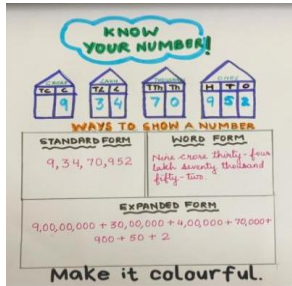 KNOW
YOUR NUMBER!
CRORE LAKH THOUSAND ONES
TC C TL L TTh Th H T O
9 3 4 7 0 9 5 2
WAYS TO SHOW A NUMBER
STANDARD FORM
9,34,70,952
WORD FORM
Nine crore thirty-four
lakh seventy thousand
fifty-two.
EXPANDED FORM
9,00,00,000 + 30,00,000 + 4,00,000 + 70,000+
900 + 50 + 2
Make it colourful.